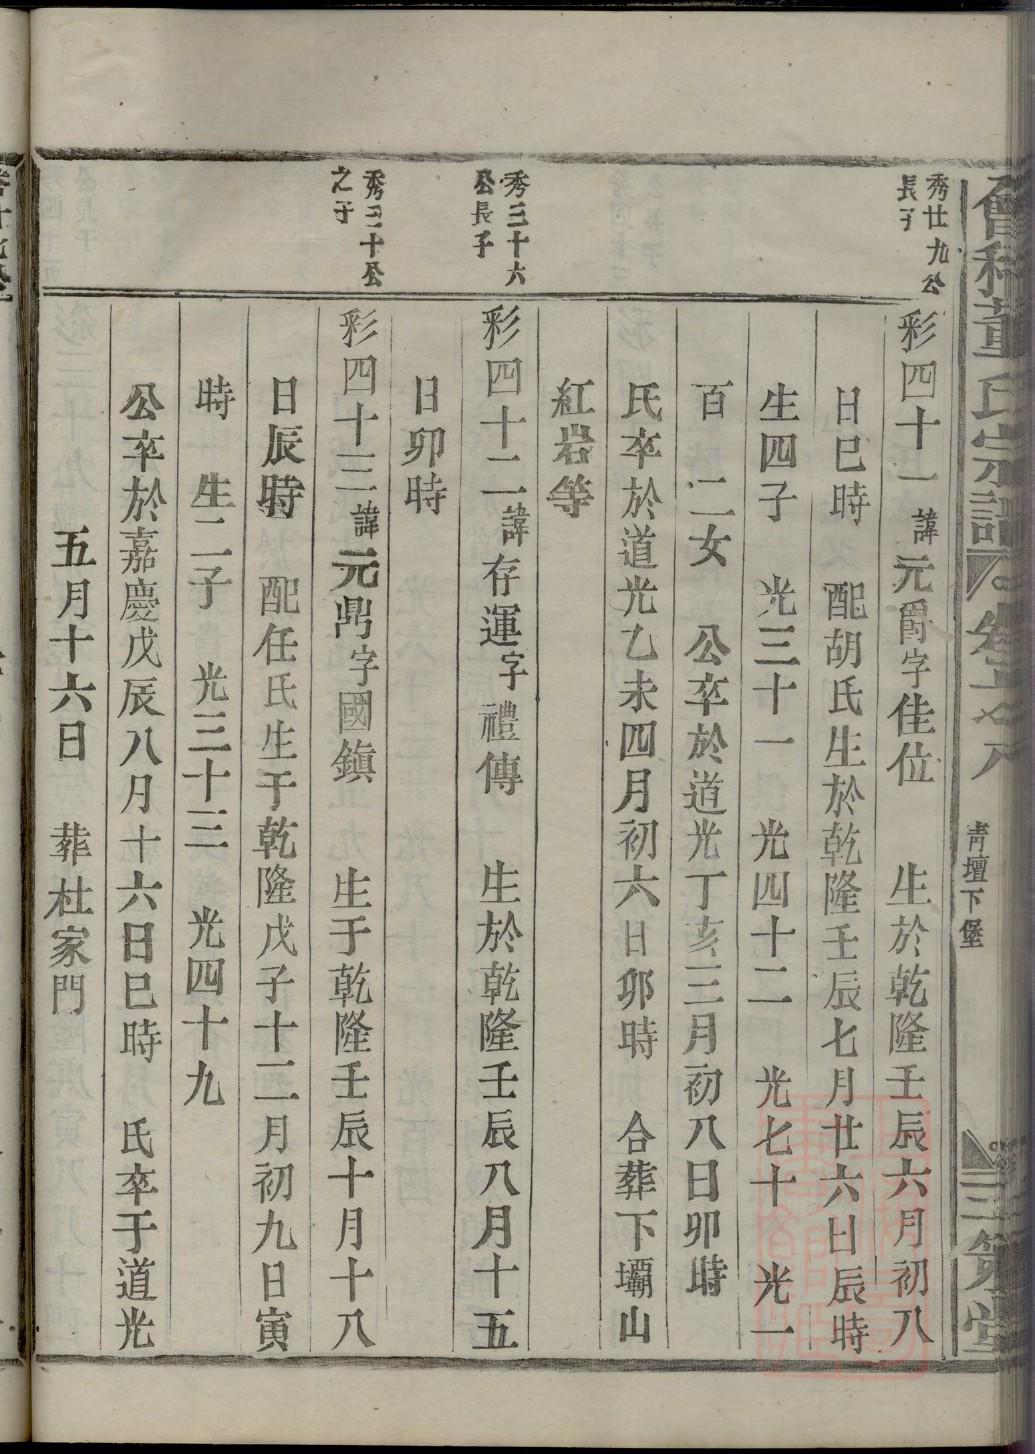 會稽董氏宗譜
青壇下堡
三策堂
秀廿九公
長子
彩四十一 諱元爵字佳位 生於乾隆壬辰六月初八
日巳時 配胡氏生於乾隆壬辰七月廿六日辰時
生四子 光三十一 光四十二 光七十 光一
百 二女 公卒於道光丁亥三月初八日卯時
氏卒於道光乙未四月初六日卯時 合葬下壩山
紅岩等
秀三十六
公長子
彩四十二 諱存運字禮傳 生於乾隆壬辰八月十五
日卯時
秀三十公
之子
彩四十三 諱元鼎字國鎮 生于乾隆壬辰十月十八
日辰時 配任氏生于乾隆戊子十二月初九日寅
時 生二子 光三十三 光四十九
公卒於嘉慶戊辰八月十六日巳時 氏卒于道光
五月十六日 葬杜家門